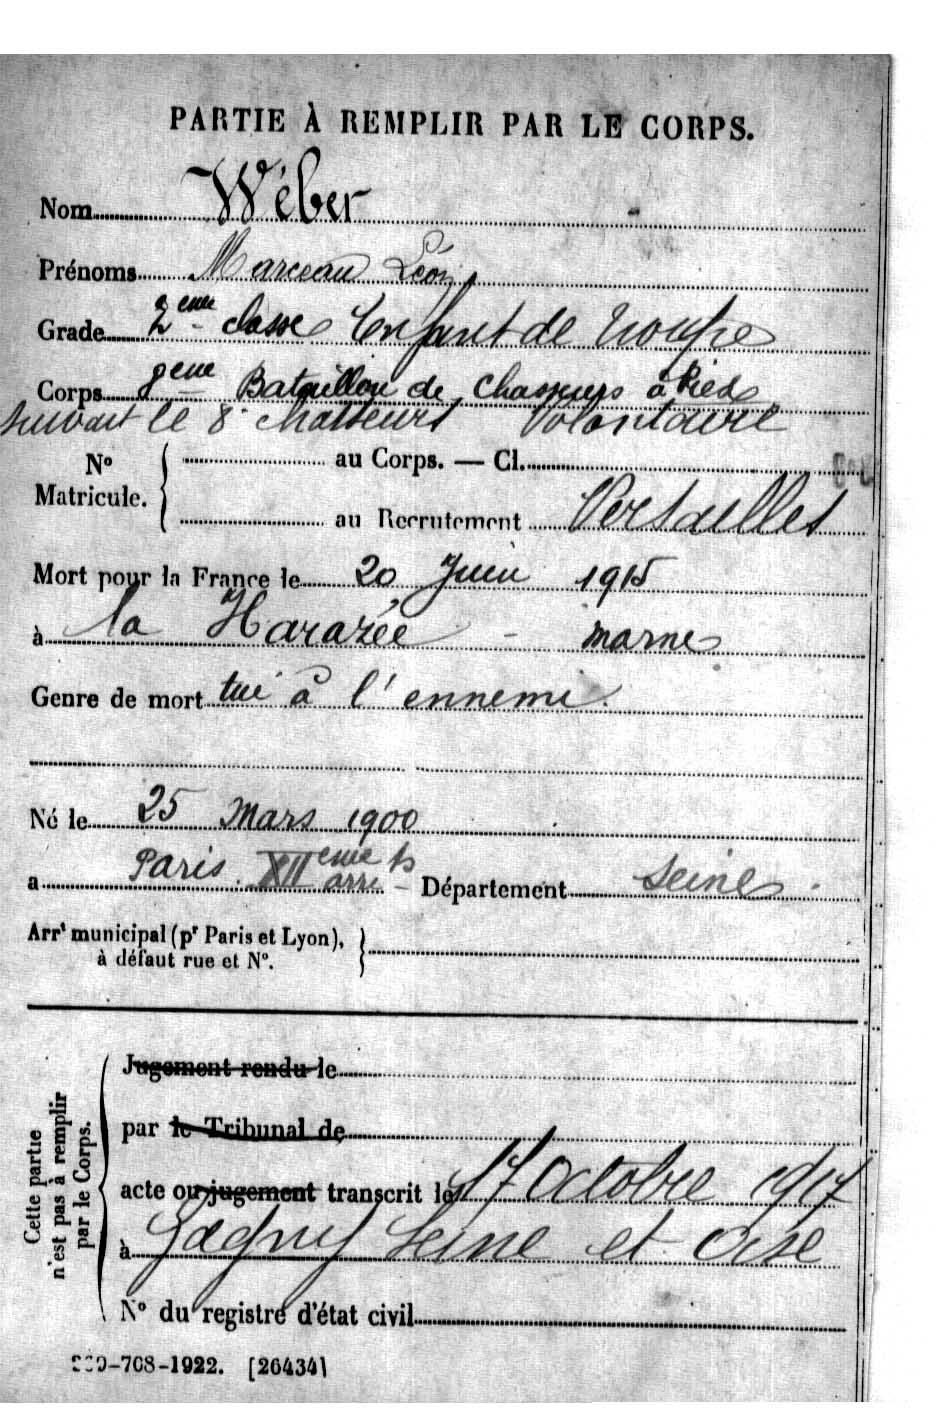 PARTIE À REMPLIR PAR LE CORPS.
Nom Wéber
Prénoms Marceau Léon
Grade 2eme classe Enfant de troupe
Corps 8eme Bataillon de Chasseurs à Pied
suivait le 8e chasseurs Volontaire
No Matricule. { au Corps. — Cl.
au Recrutement Versailles
Mort pour la France le 20 Juin 1915
à la Harazée - Marne
Genre de mort tué à l'ennemi.
Né le 25 Mars 1900
a Paris XIIeme arrt - Département Seine.
Arrt municipal (pr Paris et Lyon),
à défaut rue et No. }
Cette partie
n'est pas à remplir
par le Corps.
Jugement rendu le
par le Tribunal de
acte ou jugement transcrit le 17 Octobre 1917
à Gagny Seine et Oise
No du registre d'état civil
-708-1922. [26434]